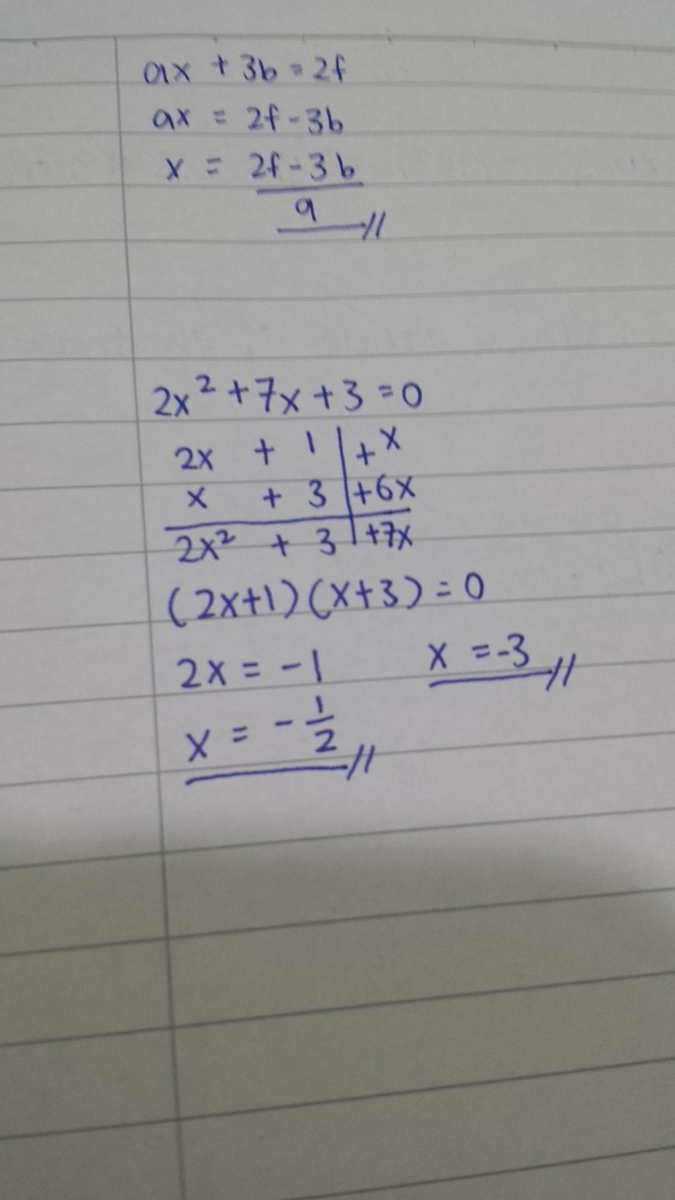 ax + 3b = 2f
ax = 2f - 3b
x = 2f - 3b
a //
2x² + 7x + 3 = 0
2x + 1 | + x
x + 3 | + 6x
2x² + 3 | + 7x
(2x+1)(x+3) = 0
2x = -1 x = -3 //
x = - 1/2 //